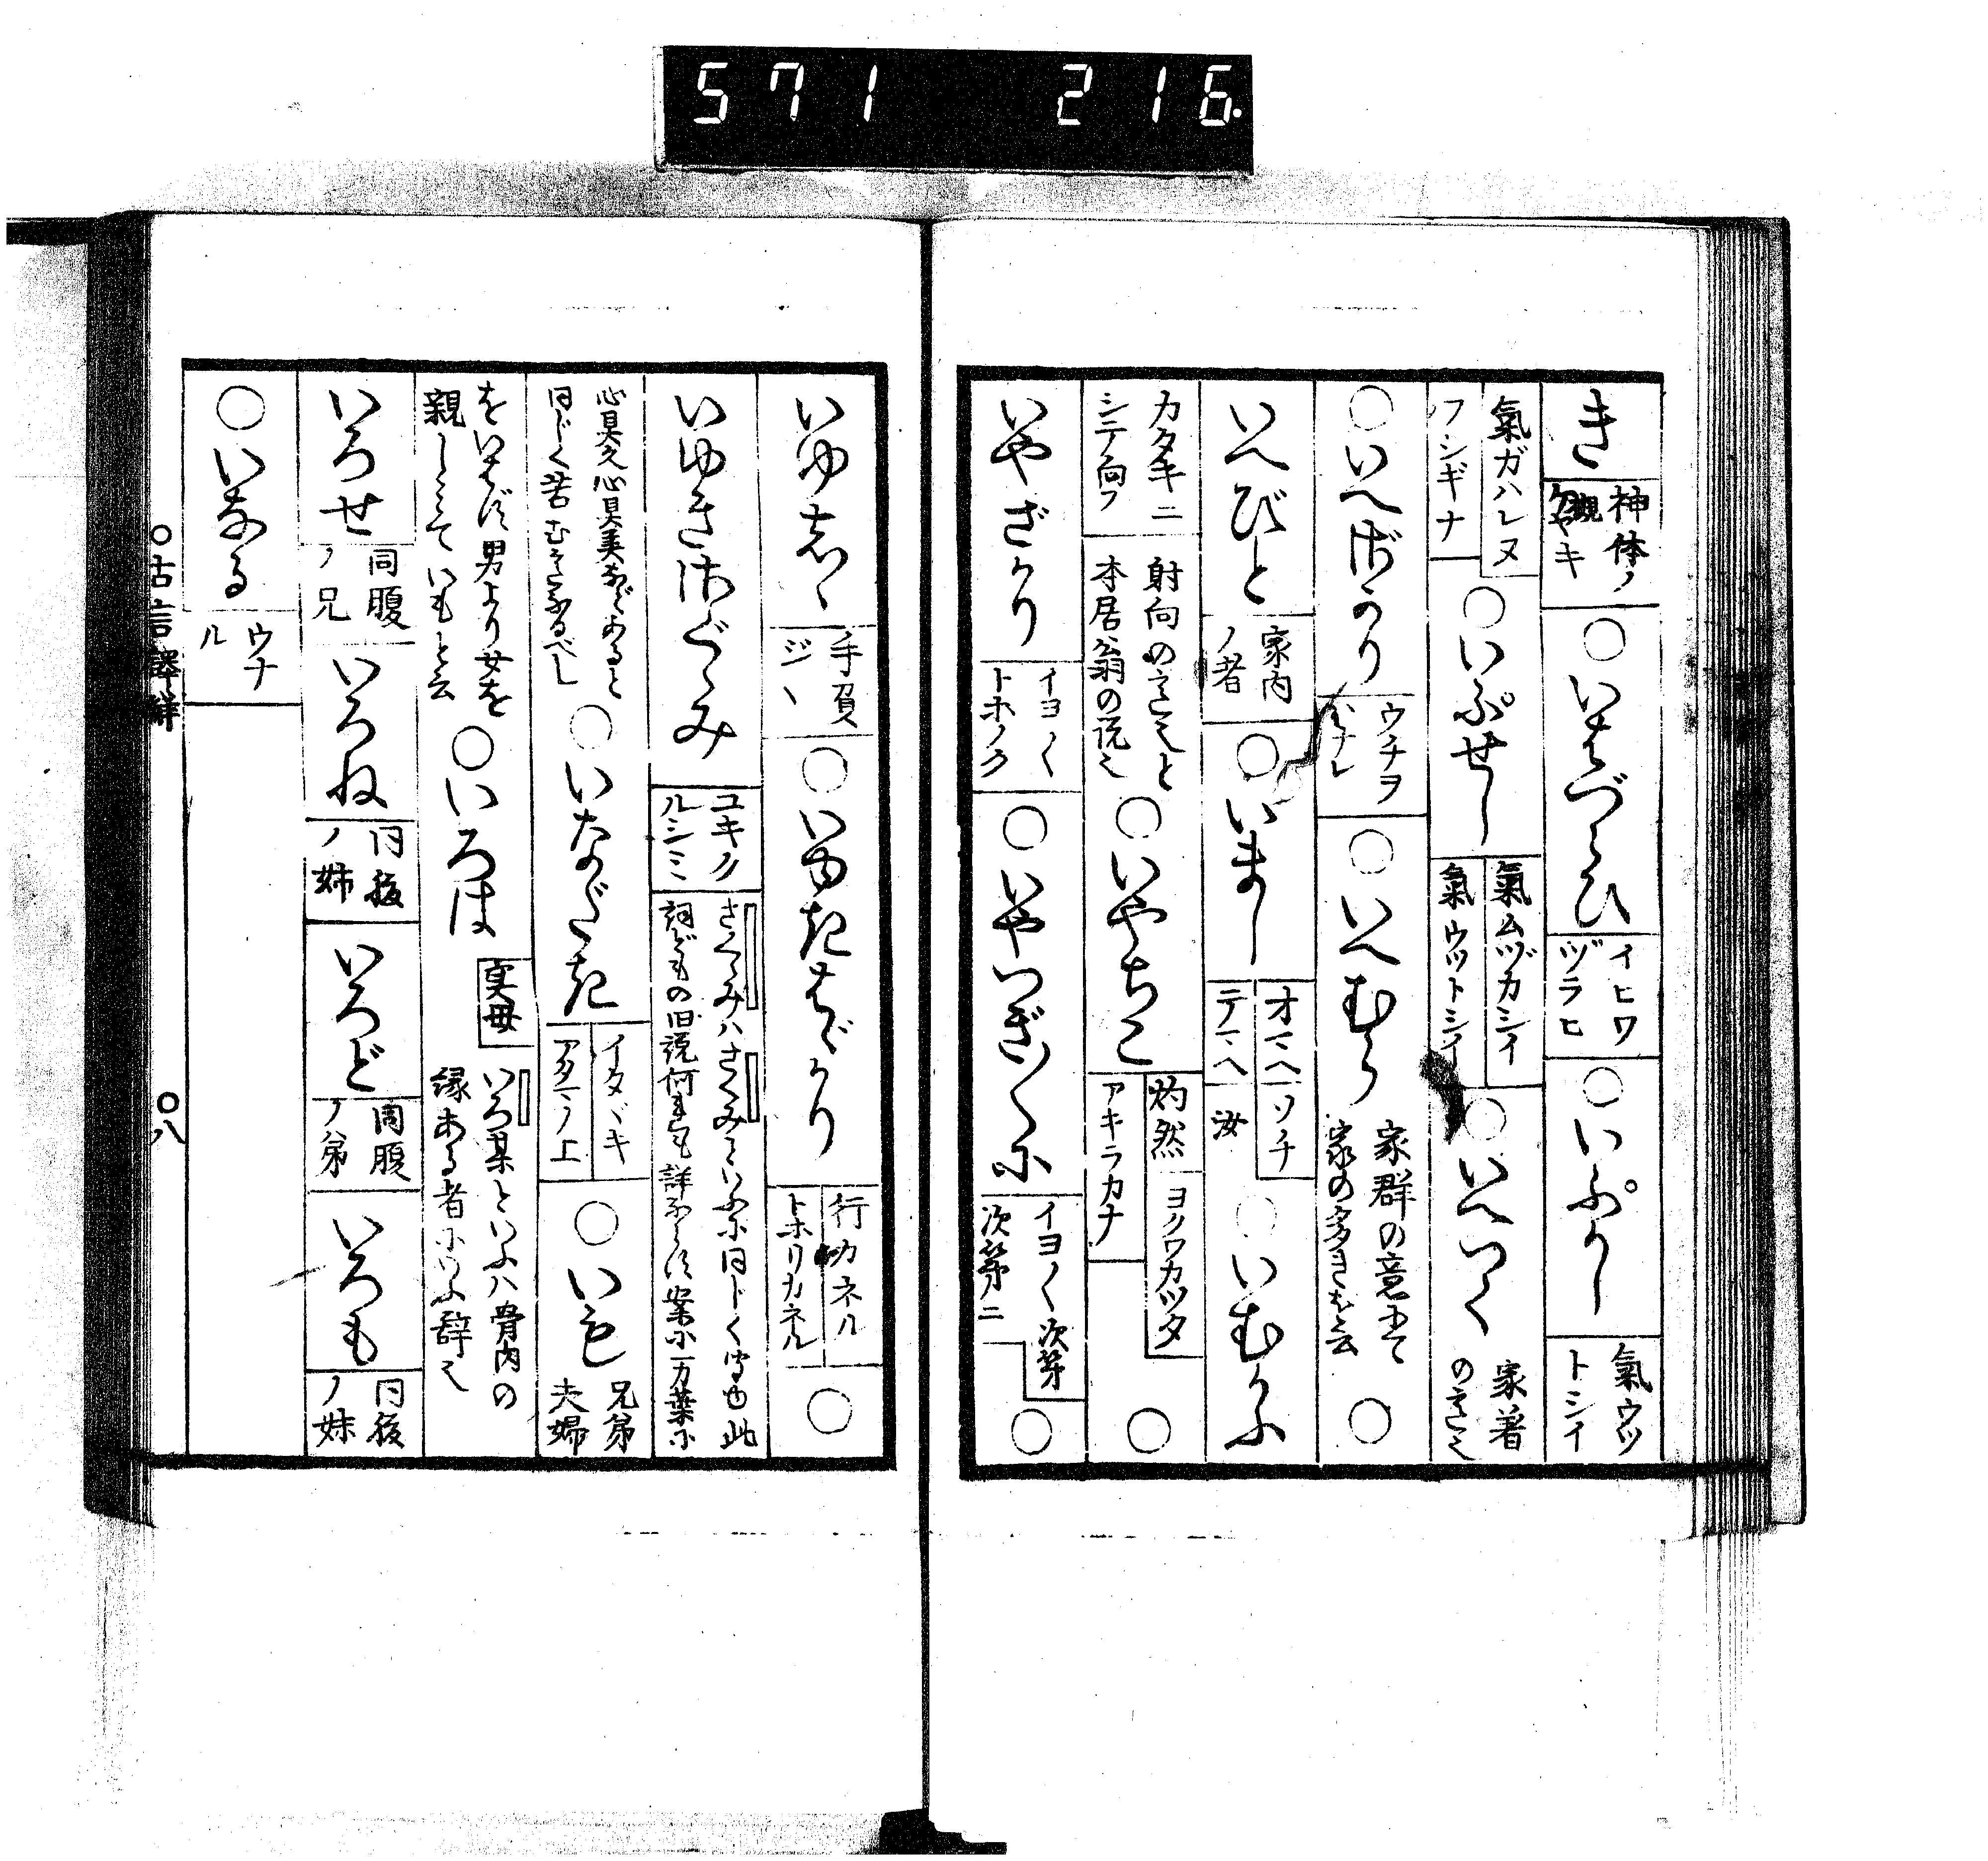 571 216.
き 神体ノ ヤキ ○いはづらひ イヒワヅラヒ ○いぷかし 氣ウットシイ
氣ガハレヌ フシギナ ○いぷせし 氣ムヅカシイ 氣ウットシイ ○いへつく 家着の意也
○いへざかり ウチヲハナレ ○いへむら 家群の意にて家の多きを云 ○
いへびと 家内ノ者 ○いまし オマヘ ソチ テマヘ 汝 ○いむかふ
カタキニシテ向フ 射向の意也と本居翁の説也 ○いやちこ 灼然 ヨクワカツタ アキラカナ ○
いやざかり イヨ〱トホノク ○いやつぎ〱に イヨ〱次第次第ニ ○
いゆしゝ 手負ジヽ ○いゆきはゞかり 行カネル トホリカネル ○
いゆきさぐゝみ ユキクルシミ さくゝみハさくみといふに同じく聞ゆ此詞どもの旧説何れも詳ならず案に万葉に
心具久心具美などあると同じく苦むことなるべし ○いなだき イタヾキ アタマノ上 ○いも 兄弟夫婦
をいはず男より女を親しみていもと云 ○いろは 実母 いろ某といふハ骨肉の縁ある者にいふ辞也
いろせ 同腹ノ兄 いろね 同腹ノ姉 いろど 同腹ノ弟 いろも 同腹ノ妹
○いなる ウナル
○古言譯解 ○八